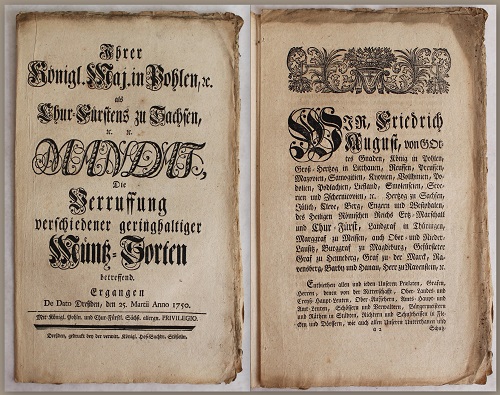 Ihrer
Königl. Maj. in Pohlen, ꝛc.
als
Chur-Fürstens zu Sachsen,
ꝛc. ꝛc.
MANDAT,
Die
Verruffung
verschiedener geringhaltiger
Müntz-Sorten
betreffend.
Ergangen
De Dato Dreßden, den 25. Martii Anno 1750.
Mit Königl. Pohln. und Chur-Fürstl. Sächß. allergn. PRIVILEGIO.
Dreßden, gedruckt bey der verwitt. Königl. Hof-Buchdr. Stößelin.
WIR, Friedrich
August, von GOt-
tes Gnaden, König in Pohlen,
Groß-Hertzog in Litthauen, Reussen, Preussen,
Mazovien, Samogitien, Kyovien, Vollhinien, Po-
dolien, Podlachien, Liefland, Smolenscien, Seve-
rien und Tschernicovien, ꝛc. Hertzog zu Sachsen,
Jülich, Cleve, Berg, Engern und Westphalen,
des Heiligen Römischen Reichs Ertz-Marschall
und Chur-Fürst, Landgraf in Thüringen,
Marggraf zu Meissen, auch Ober- und Nieder-
Lausitz, Burggraf zu Magdeburg, Gefürsteter
Graf zu Henneberg, Graf zu der Marck, Ra-
vensberg, Barby und Hanau, Herr zu Ravenstein, ꝛc.
Entbiethen allen und ieden Unseren Praelaten, Grafen,
Herren, denen von der Ritterschafft, Ober-Landes- und
Creyß-Haupt-Leuten, Ober-Aufsehern, Amts-Haupt- und
Amt-Leuten, Schössern und Verwaltern, Bürgermeistern
und Räthen in Städten, Richtern und Schultheißen in Fle-
cken und Dörffern, wie auch allen Unseren Unterthanen und
Schutz-